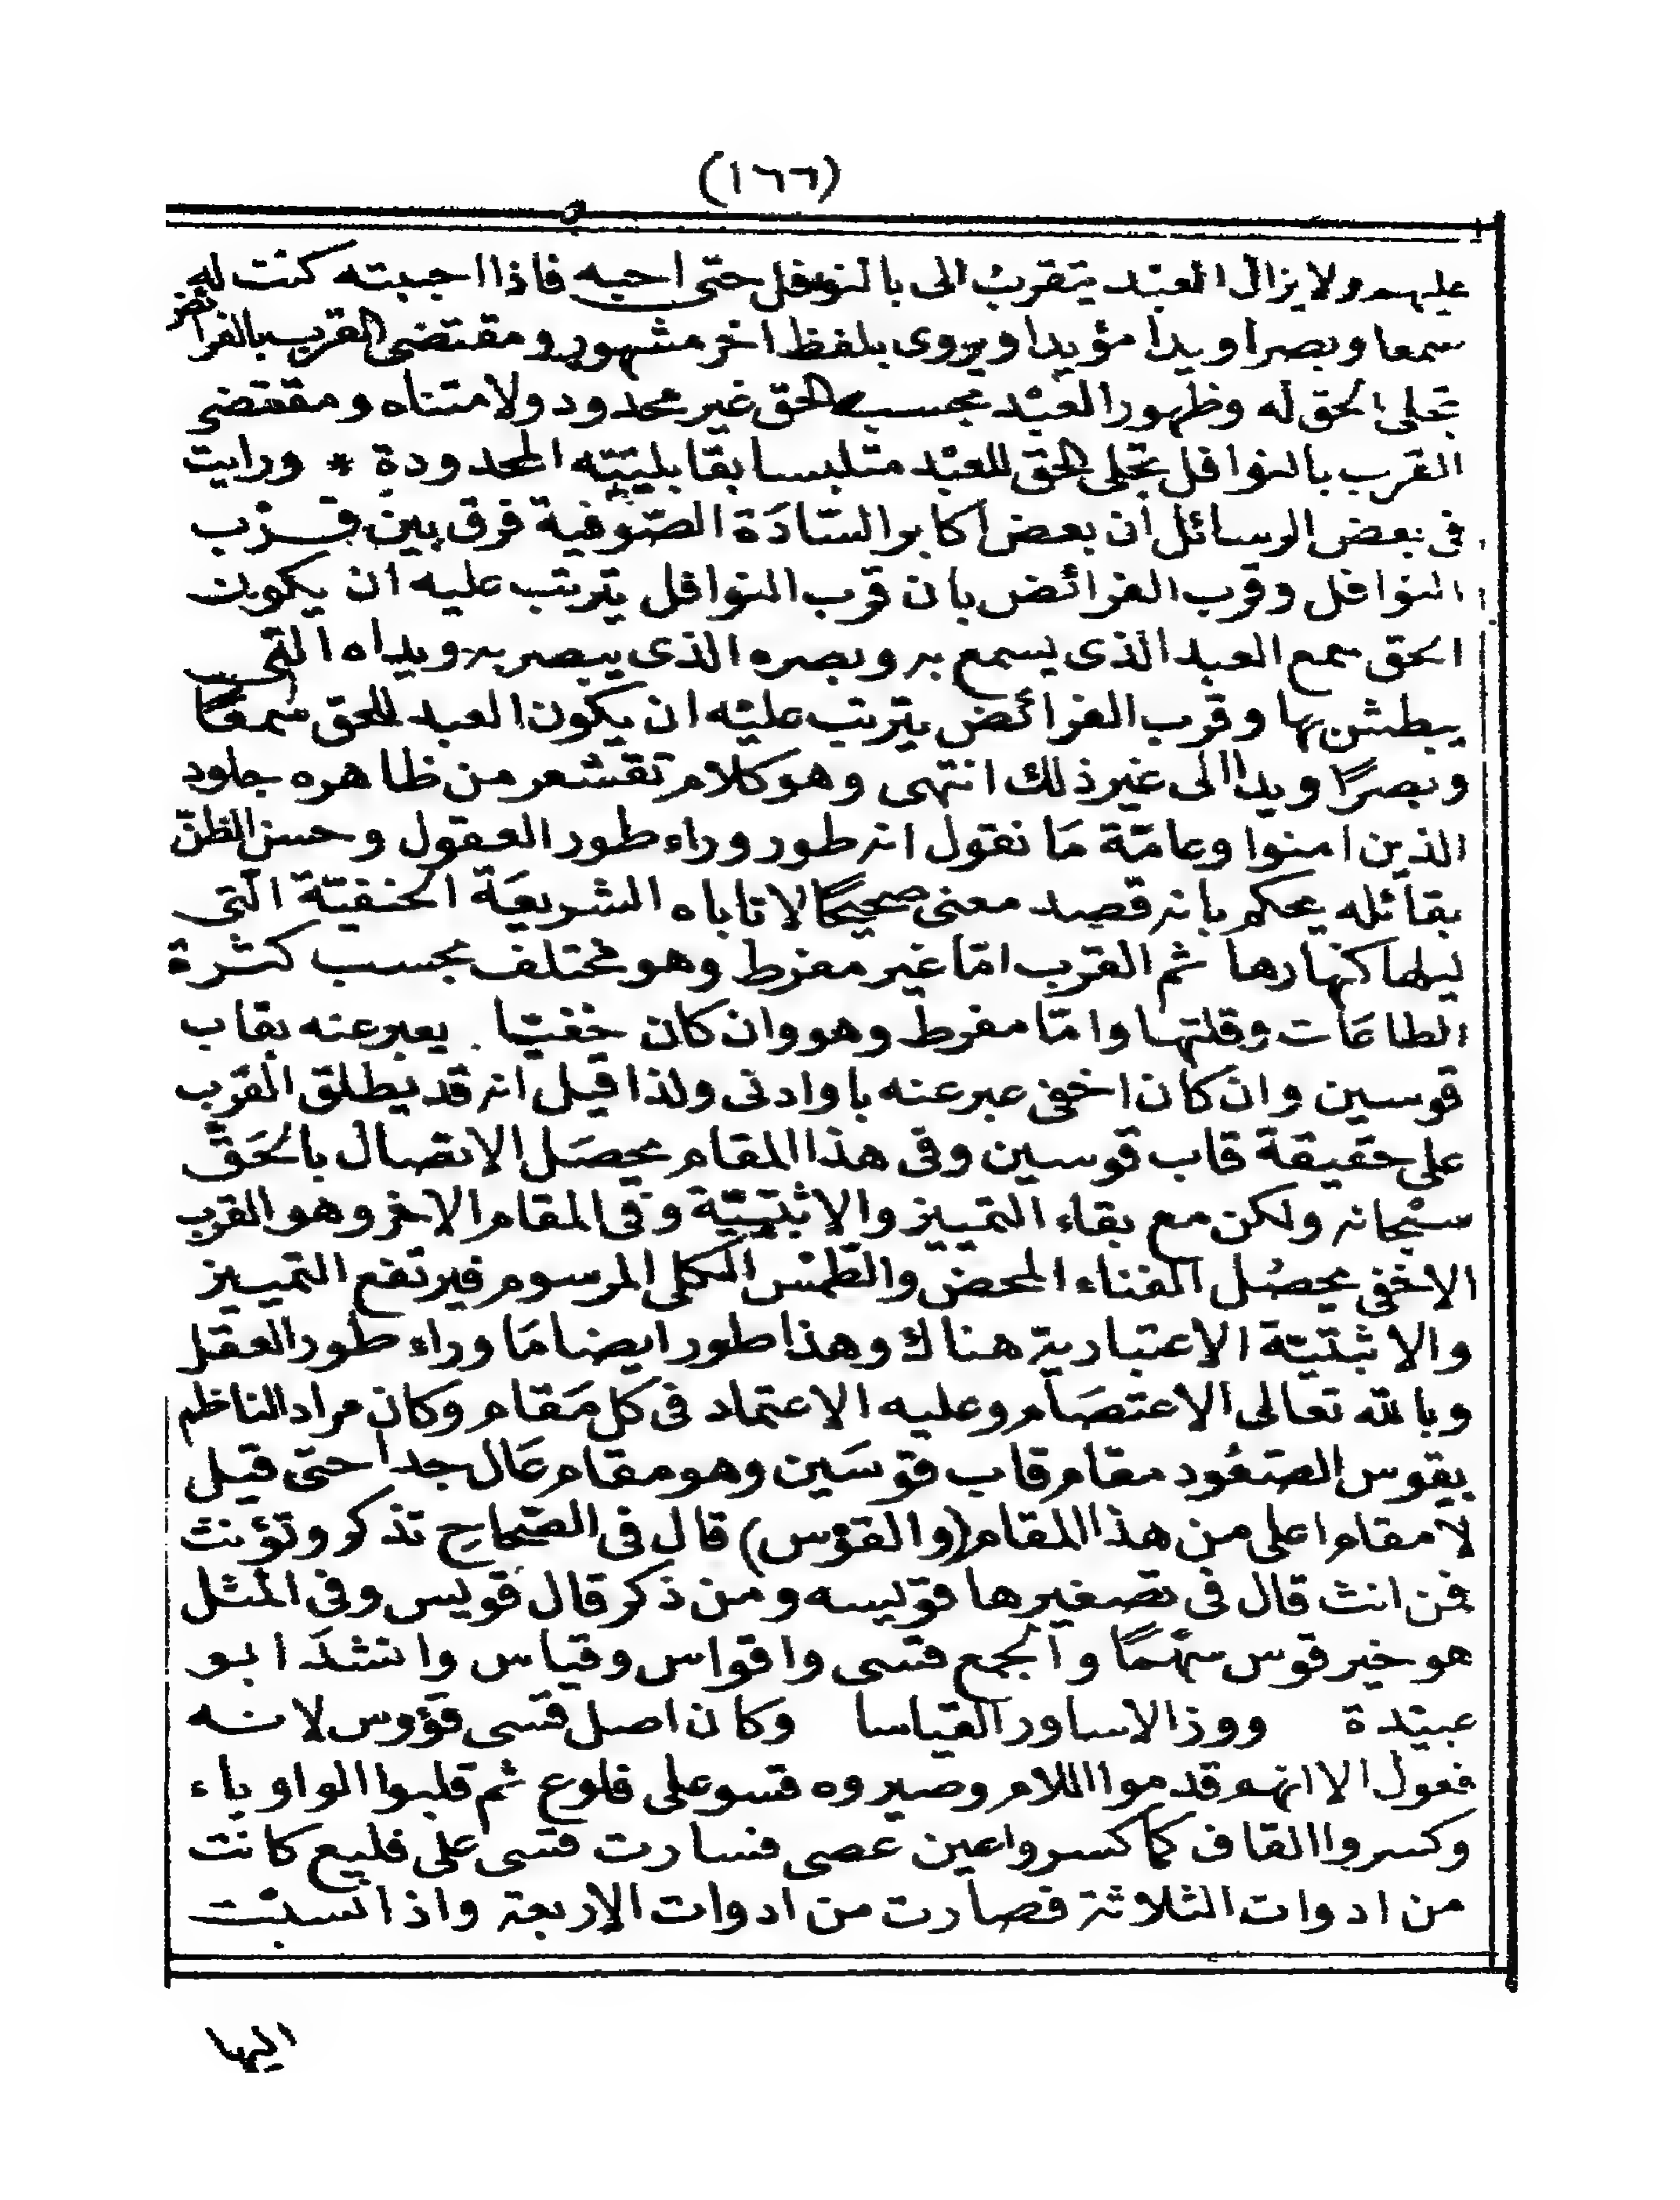 (١٦٦)
عليهم ولا يزال العبد يتقرب الى بالنوافل حتى احبه فاذا احببته كنت له
سمعا وبصرا ويدا مؤيدا ويروى بلفظ اخر مشهور ومقتضى القرب بالفرائض
تجلى الحق له وظهور العبد بحسب الحق غير محدود ولا متناه ومقتضى
القرب بالنوافل تجلى الحق للعبد متلبسا بقابليته المحدودة * ورايت
فى بعض الرسائل ان بعض اكابر السّادَة الصّوفية فرق بين قرب
النوافل وقرب الفرائض بان قرب النوافل يترتب عليه ان يكون
الحق سمع العبد الذى يسمع به وبصره الذى يبصر به ويداه التى
يبطش بها وقرب الفرائض يترتب عليه ان يكون العبد للحق سمعًا
وبصرًا ويدا الى غير ذلك انتهى وهو كلام تقشعر من ظاهره جلود
الذين امنوا وعامّة مَا نقول انه طور وراء طور العقول وحسن الظنّ
بقائله يحكم بانه قصد معنى صحيحًا لا تاباه الشريعَة الحنفيّة التى
ليلها كنهارها ثم القرب امّا غير مفرط وهو مختلف بحسب كثرة
الطاعَات وقلتها وامّا مفرط وهو وان كان خفيّا يعبر عنه بقاب
قوسين وان كان اخفى عبر عنه باو ادنى ولذا قيل انه قد يطلق القرب
على حقيقة قاب قوسين وفى هذا المقام يحصَل الاتصال بالحَقّ
سبحانه ولكن مع بقاء التمييز والاثنيّية وفى المقام الاخر وهو القرب
الاخفى يحصُل الفناء المحض والطّمس الكلى المرسوم فيرتفع التمييز
والاثنيّية الاعتبارية هناك وهذا طور ايضا مَا وراء طور العقل
وبالله تعالى الاعتصَام وعليه الاعتماد فى كل مَقام وكان مراد الناظم
بقوس الصّعُود مقام قاب قوسَين وهو مقام عَال جدا حتى قيل
لا مقام اعلى من هذا المقام (والقوس) قال فى الصّحاح تذكر وتؤنث
فمن انث قال فى تصغيرها قويسه ومن ذكر قال قويس وفى المثل
هو خير قوس سهمًا والجمع قسى واقواس وقياس وانشدَ ابو
عبيدة ووزّ الاساور القياسا وكان اصل قسى قؤوس لانه
فعول الا انهم قدموا اللام وصيروه قسو على فلوع ثم قلبوا الواو ياء
وكسروا القاف كما كسروا عين عصى فسارت قسى على فليع كانت
من ادوات الثلاثة فصارت من ادوات الاربعة واذا نسبت
اليها